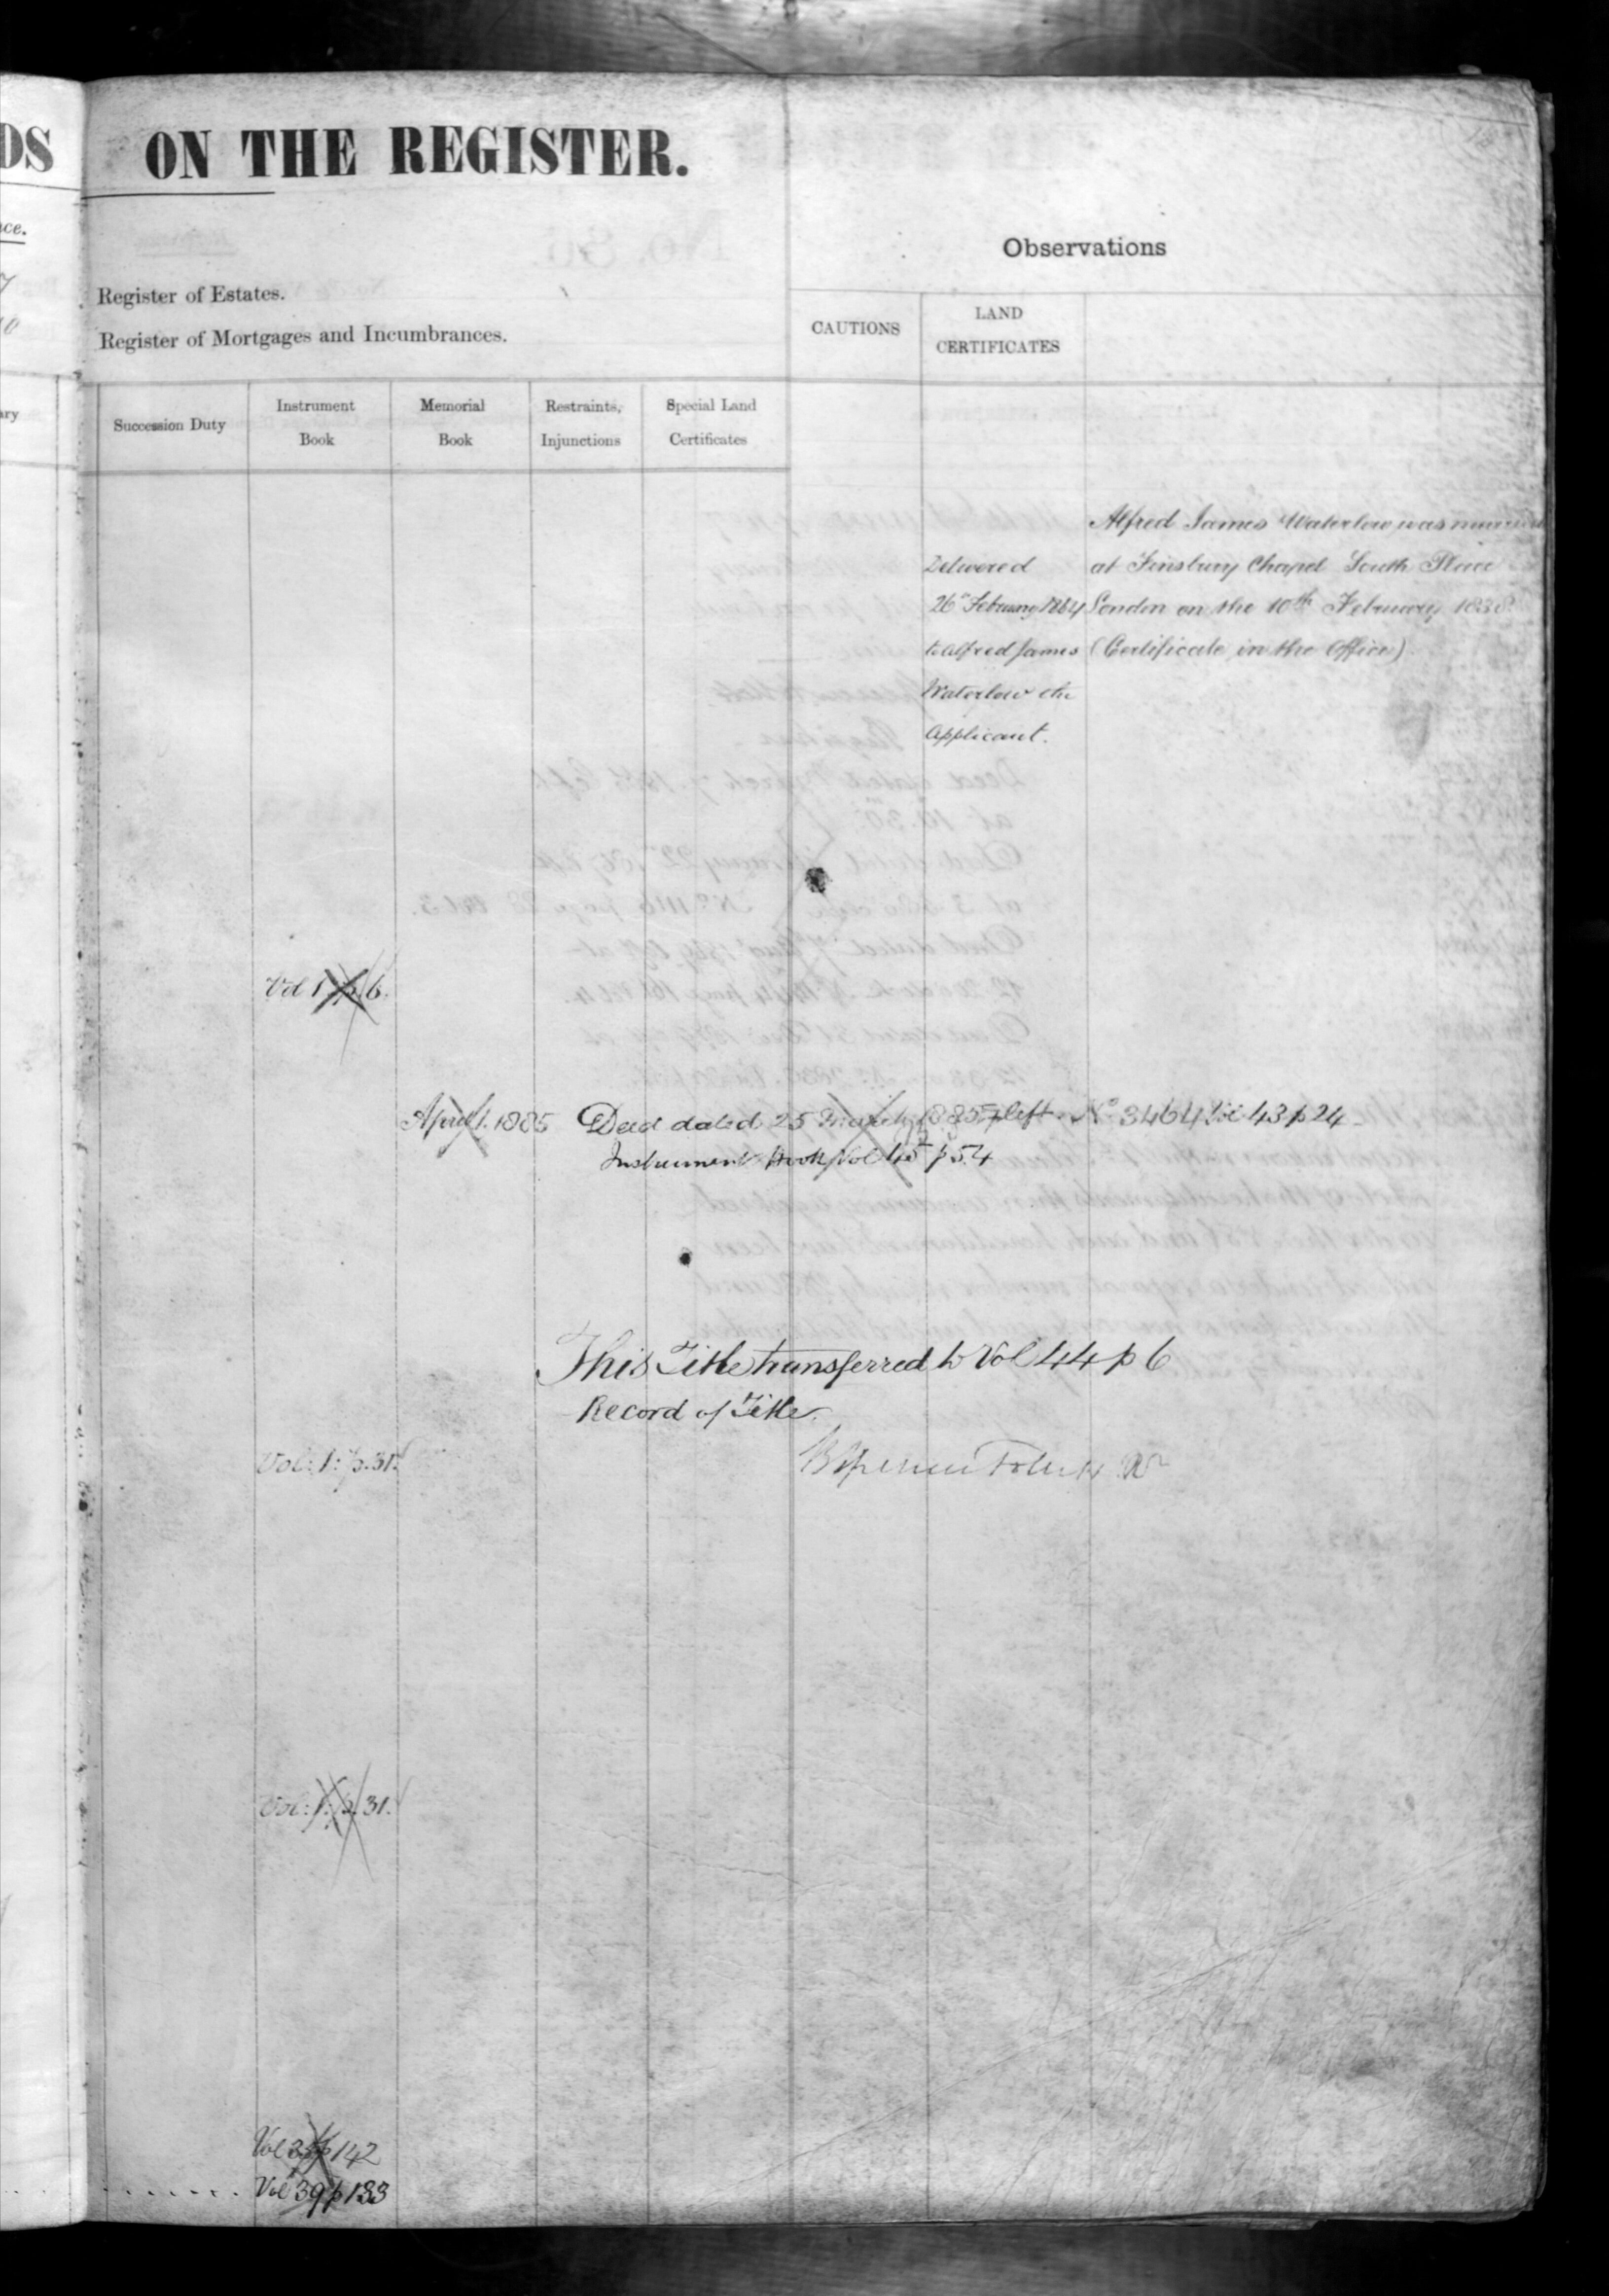 DS ON THE REGISTER.
Observations
Register of Estates.
Register of Mortgages and Incumbrances.
CAUTIONS
LAND
CERTIFICATES
Succession Duty
Instrument
Book
Memorial
Book
Restraints,
Injunctions
Special Land
Certificates
Delivered
26th February 1864
to Alfred James
Waterlow the
Applicant.
Alfred James Waterlow was married
at Finsbury Chapel South Place
London on the 10th February
(Certificate in the Office)
Vol 1 p 6.
April 1. 1885 Deed dated 25 March 1885 left No 3464 Vol 43 p 24
Instrument Book Vol 45 p 54
This Title transferred to Vol 44 p 6
Record of Title.
Vol: 1: p. 31.
Vol: 1: p. 31.
p 142
Vol 39 p 133